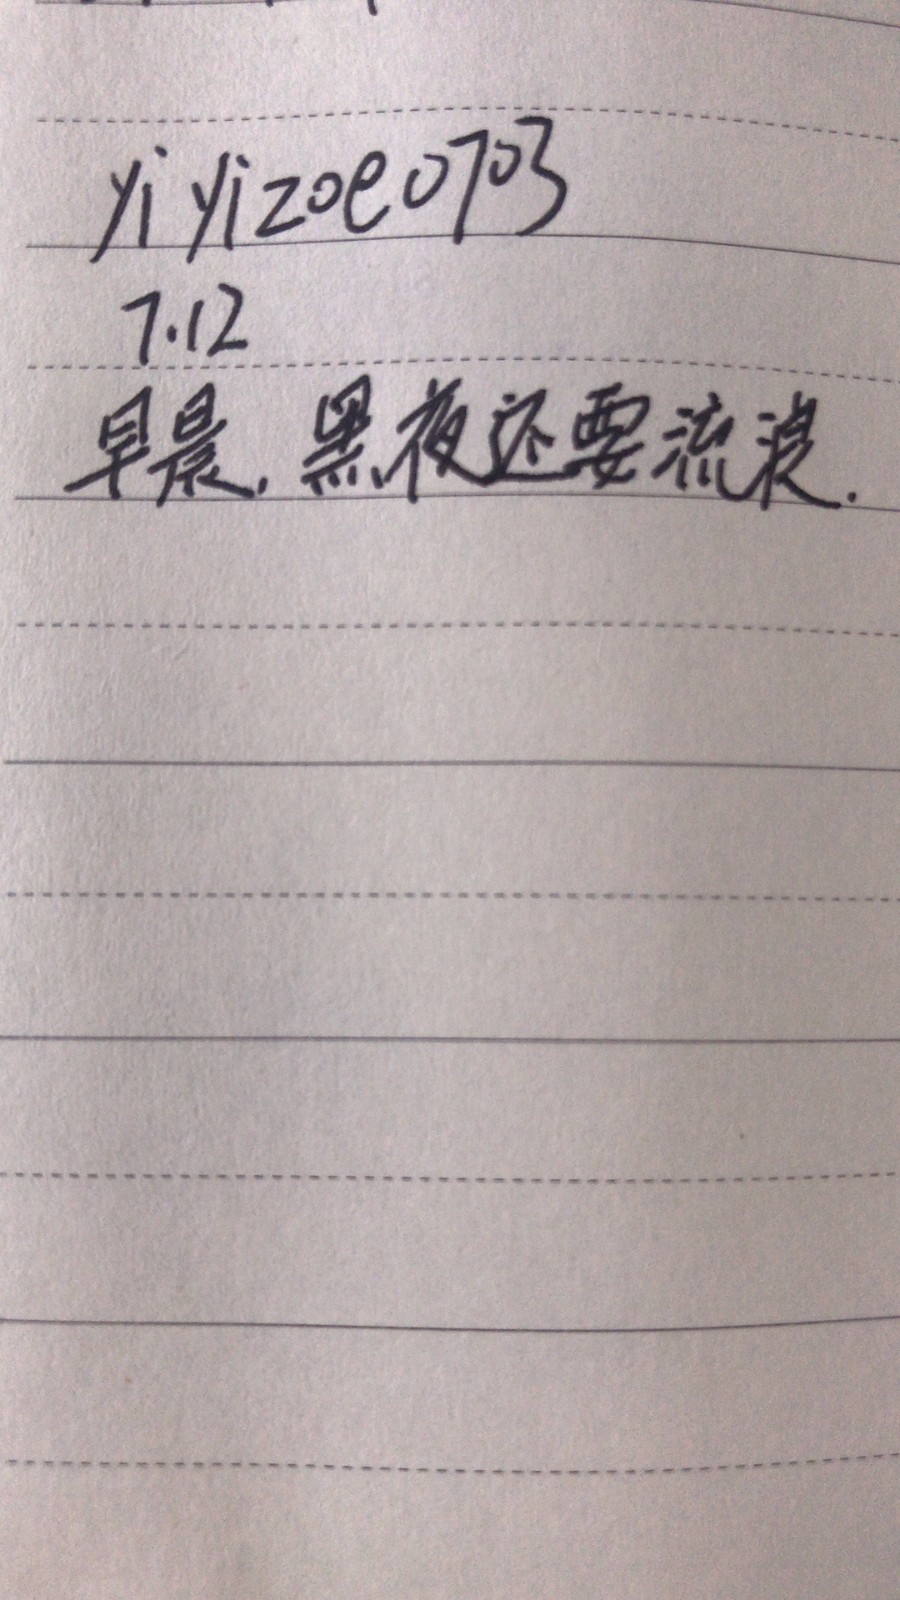 yiyizoe0703
7.12
早晨.黑夜还要流浪.